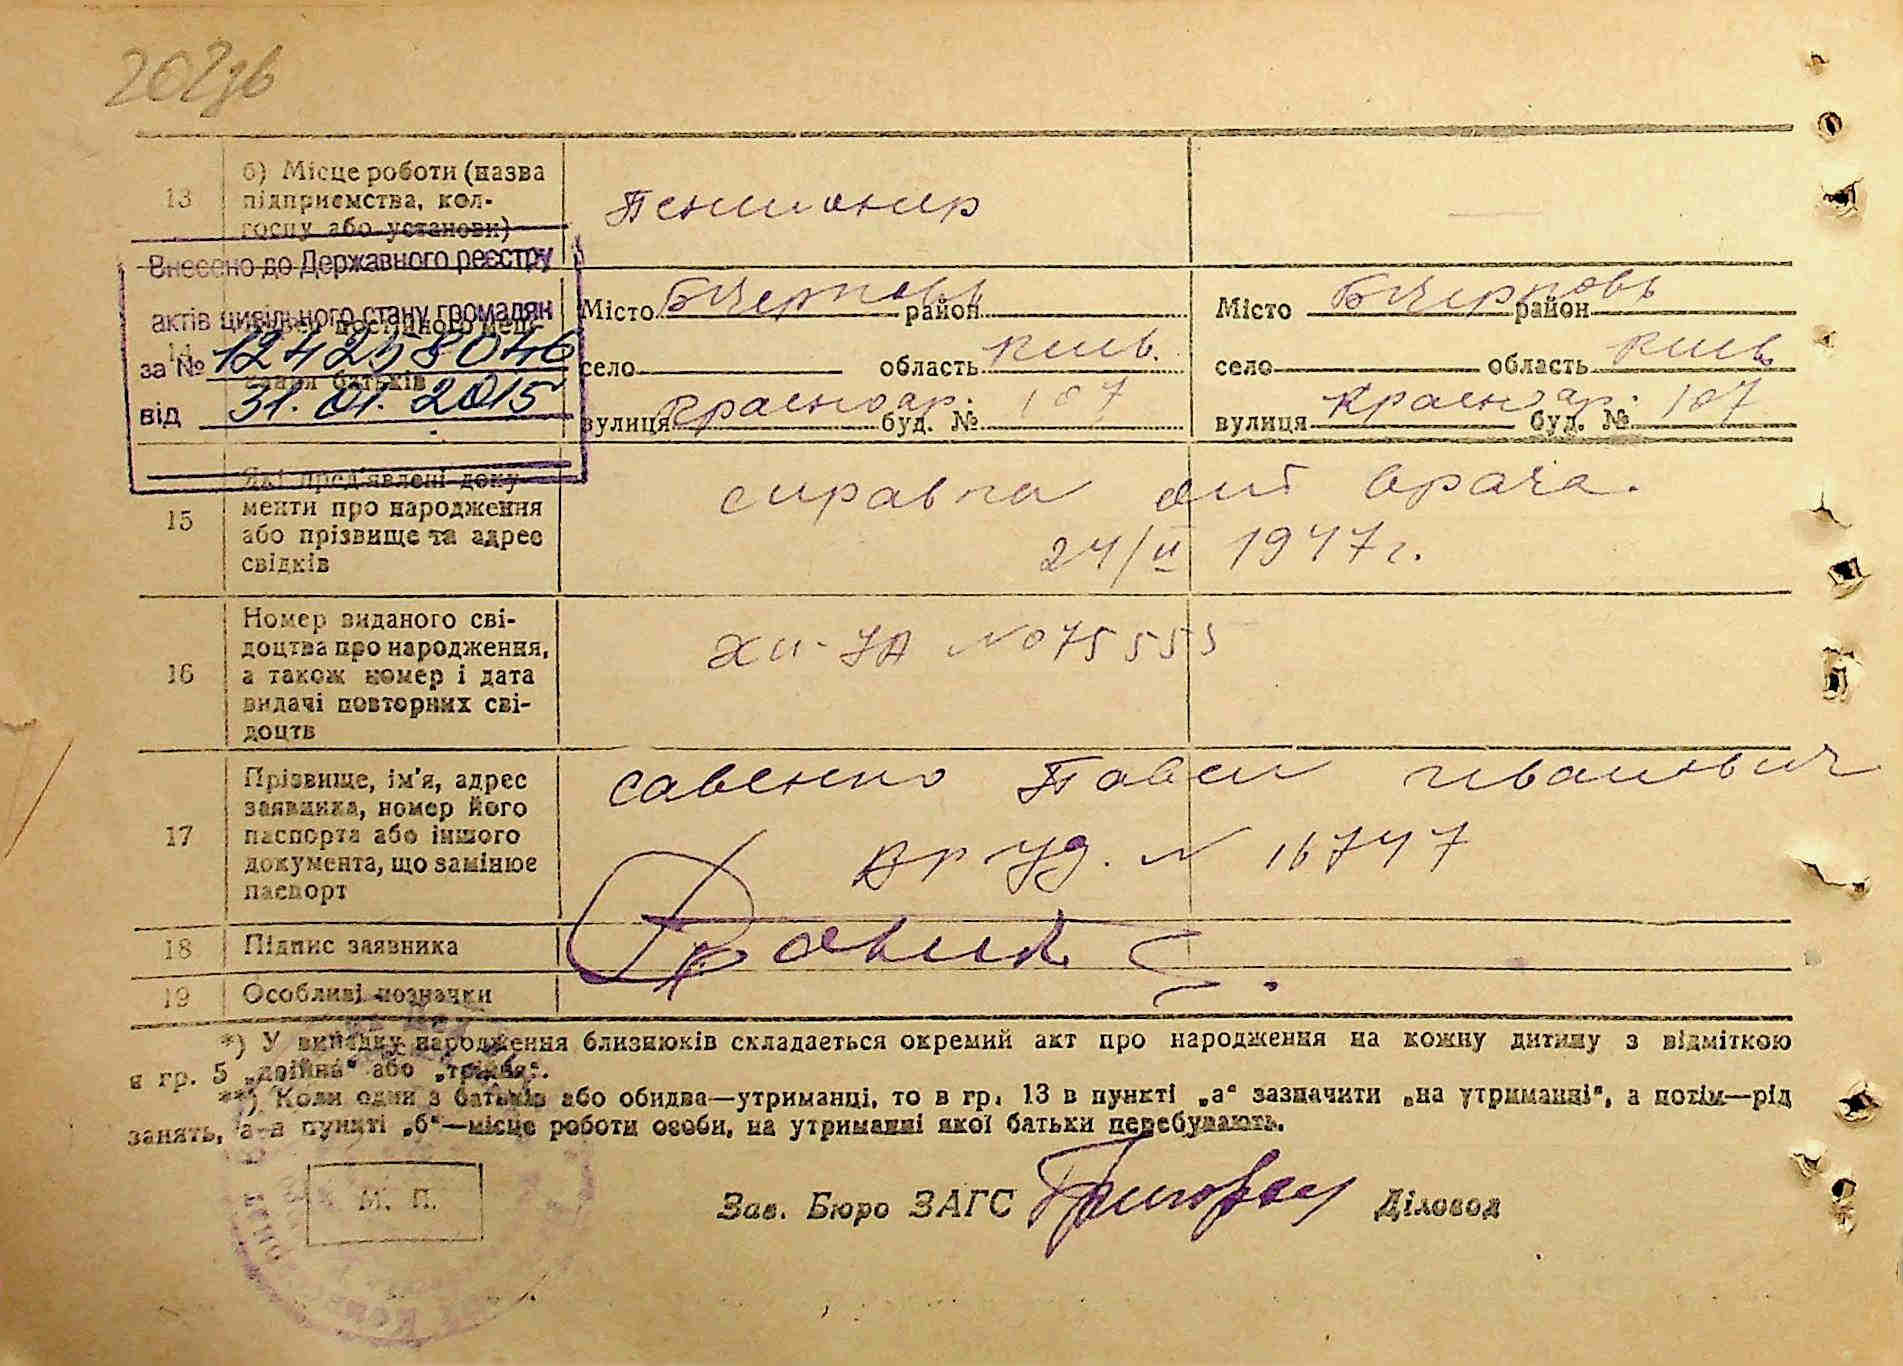 202зв
13
б) Місце роботи (назва
підприємства, кол-
госпу або установи)
Пенсионер
Внесено до Державного реєстру
актів цивільного стану громадян
за № 124258046
від 31.01.2015
14
Місто Б Церковь район
село область Киев.
вулиця Краснoар. буд. № 107
Місто Б Церковь район
село область Киев.
вулиця Красноар. буд. № 107
15
Які пред'явлені доку-
менти про народження
або прізвище та адрес
свідків
справка от врача.
24/II 1947 г.
16
Номер виданого сві-
доцтва про народження,
а також номер і дата
видачі повторних сві-
доцтв
УА № 075555
17
Прізвище, ім'я, адрес
заявника, номер його
паспорта або іншого
документа, що замінює
паспорт
Савенко Павел Иванович
вр уд. № 16747
18
Підпис заявника
19
Особливі позначки
*) У випадку народження близнюків складається окремий акт про народження на кожну дитину з відміткою
в гр. 5 „двійня“ або „трійня“.
**) Коли один з батьків або обидва—утриманці, то в гр. 13 в пункті „а“ зазначити „на утриманні“, а потім—рід
занять, а в пункті „б“—місце роботи особи, на утриманні якої батьки перебувають.
М. П.
Зав. Бюро ЗАГС
Діловод